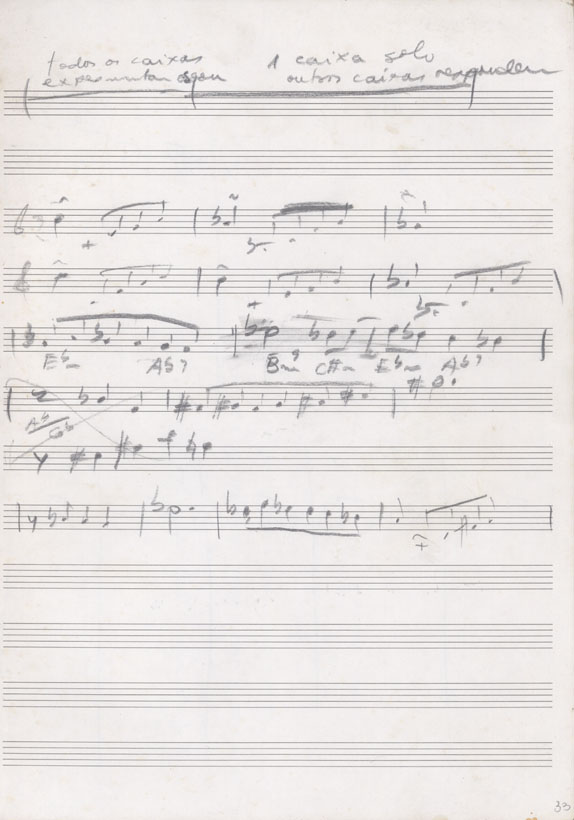 todos os caixas
experimentam
1 caixa solo
outros caixas respondem
Ebm Ab7
C#m Ebm Ab7
Ab
Gb
33